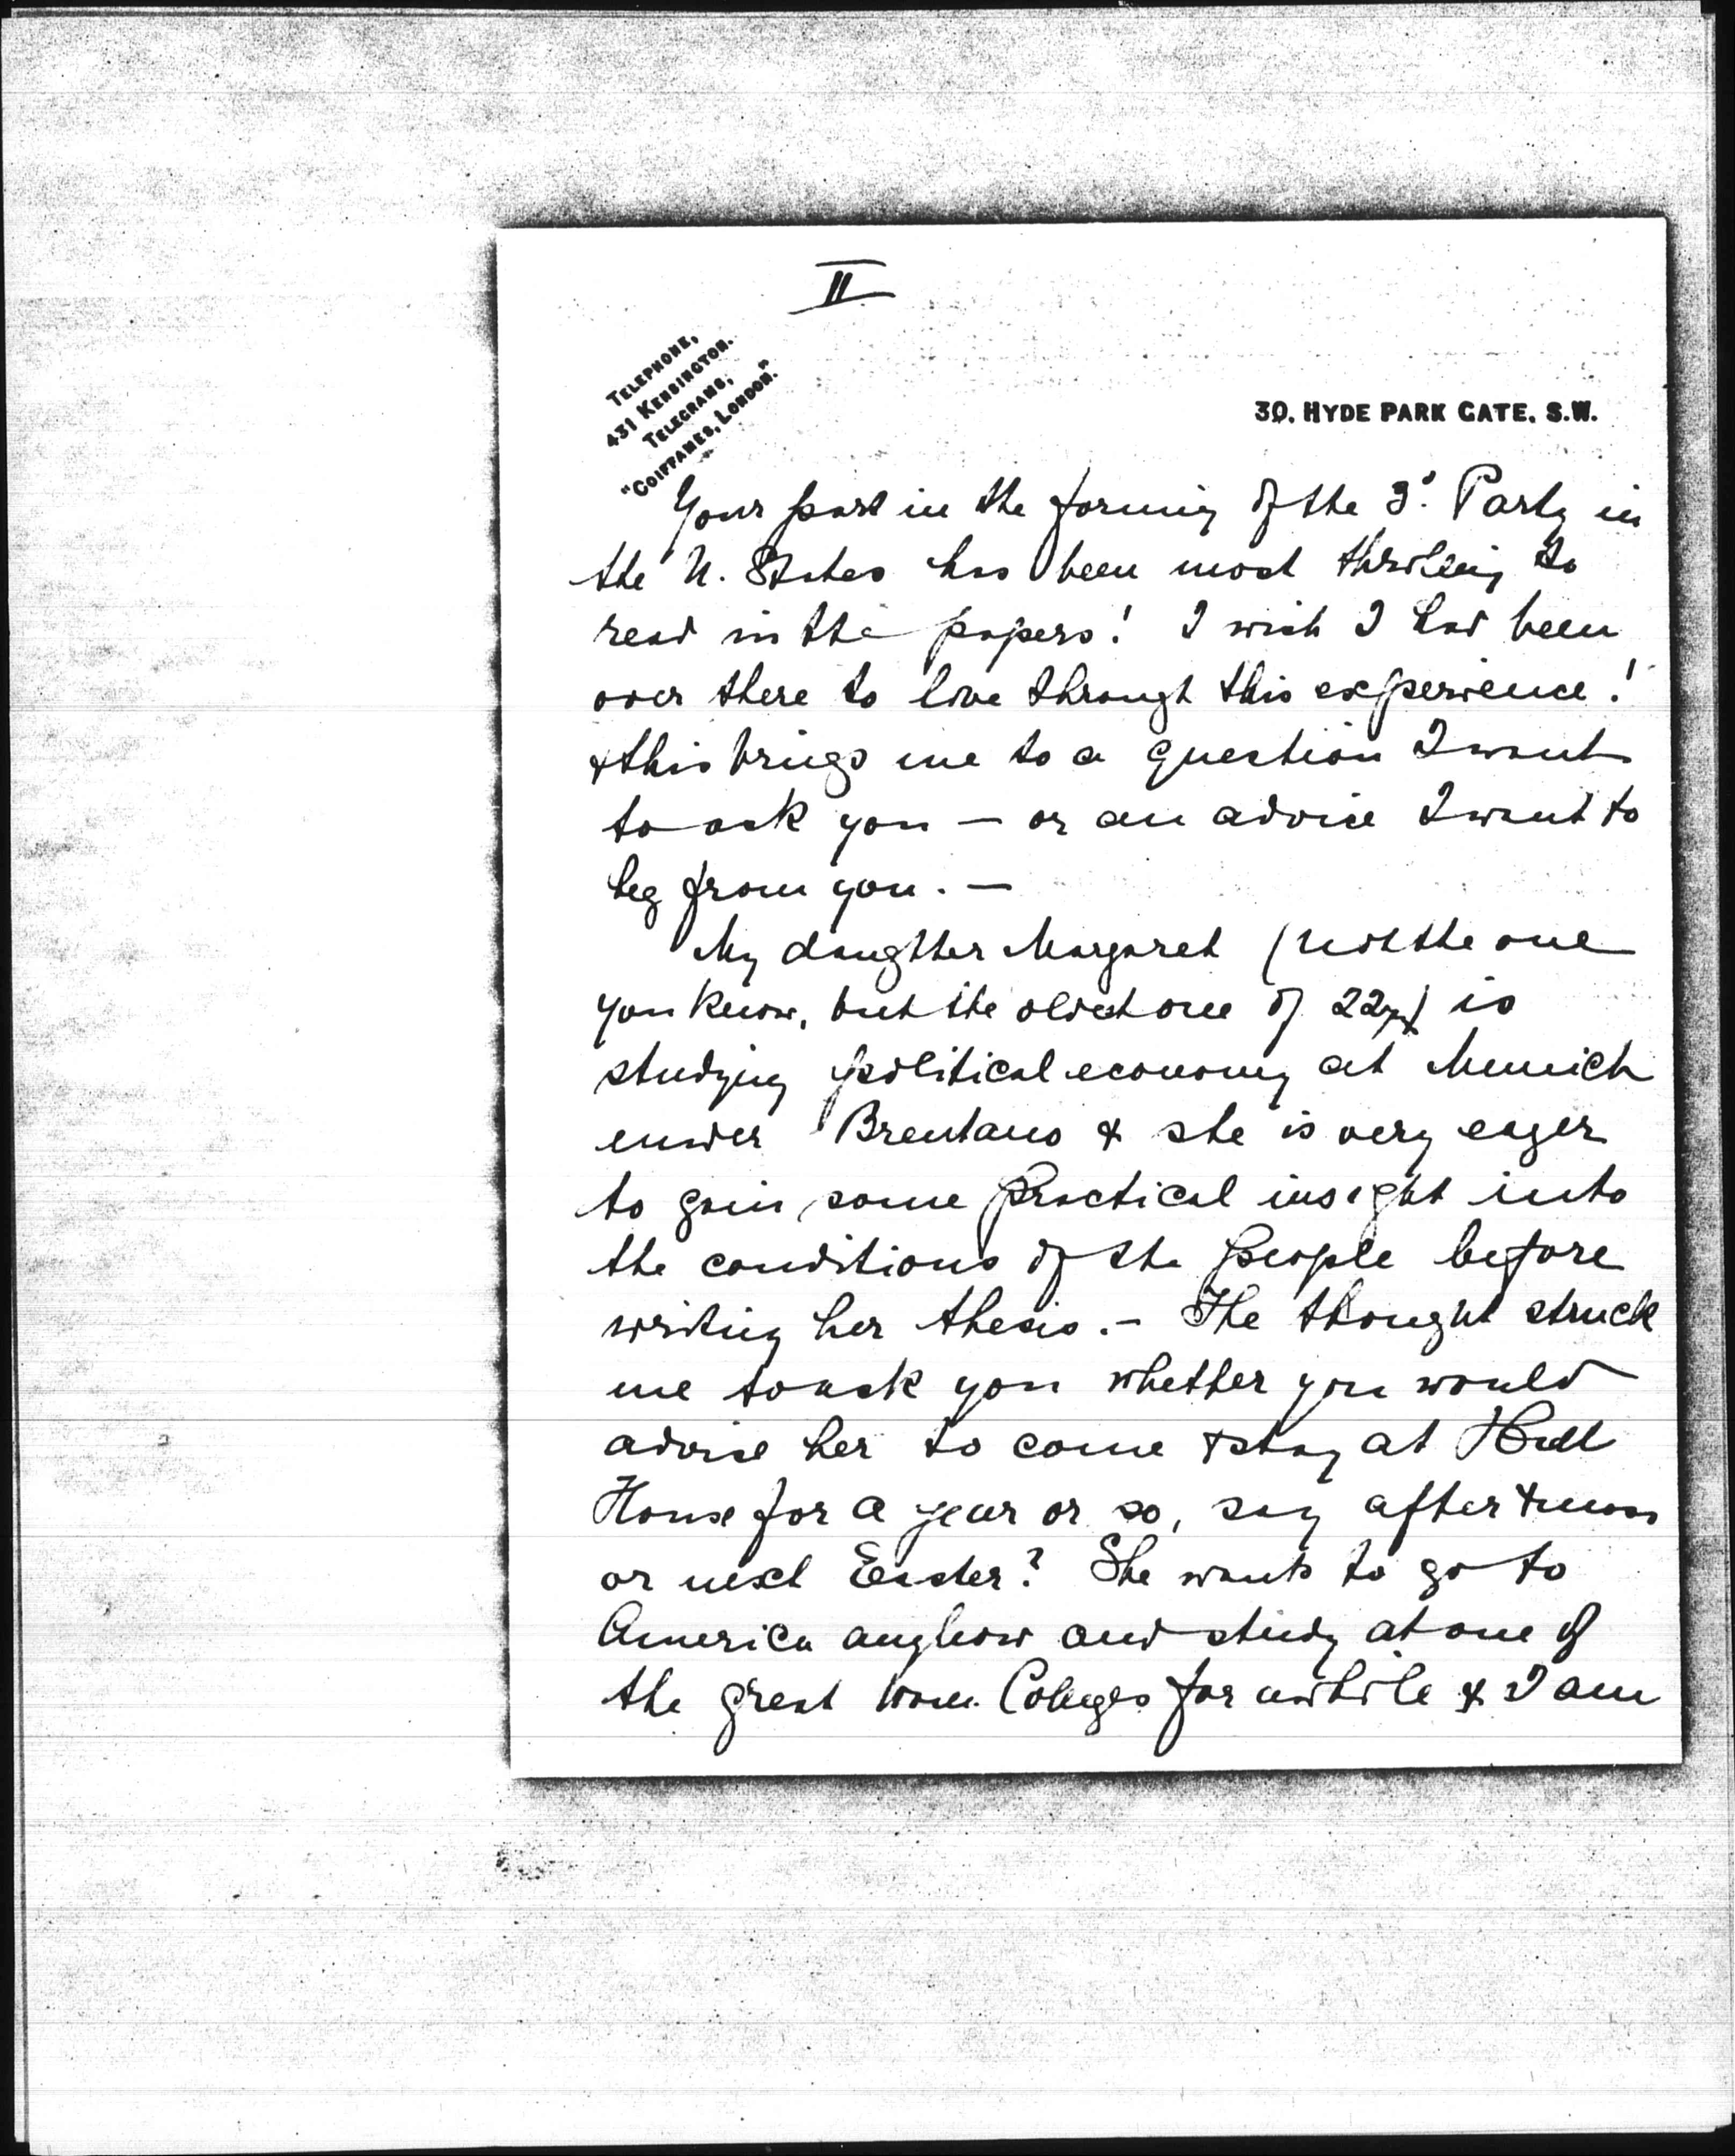 II
TELEPHONE,
431 KENSINGTON.
TELEGRAMS,
"COIFFAMES, LONDON."
30, HYDE PARK GATE, S.W.
Your part in the forming of the 3d. Party in
the U. States has been most thrilling to
read in the papers! I wish I had been
over there to live through this experience!
& this brings me to a question I want
to ask you — or an advice I want to
beg from you. —
My daughter Margaret (not the one
you know, but the oldest one of 22 yrs) is
studying political economy at Munich
under Brentano & she is very eager
to gain some practical insight into
the conditions of the people before
writing her thesis. – The thought struck
me to ask you whether you would
advise her to come & stay at Hull
House for a year or so, say after Xmas
or next Easter? She wants to go to
America anyhow and study at one of
the great Wom. Colleges for awhile & I am